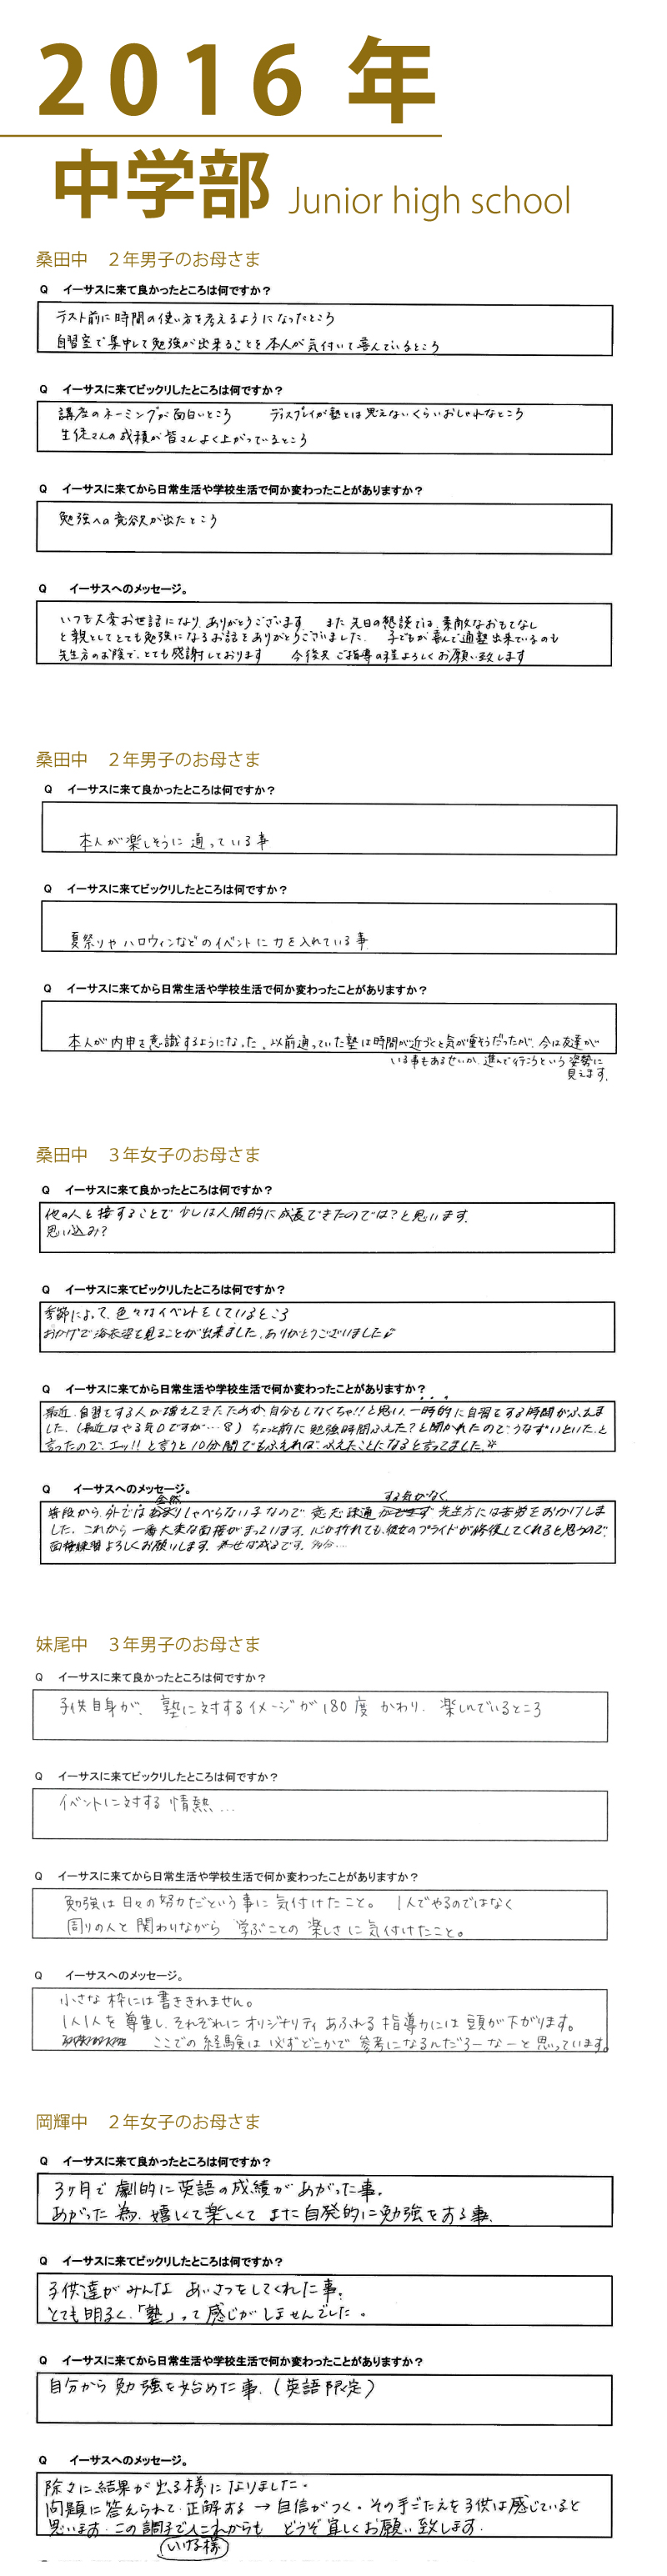 2016 年
中学部 Junior high school
桑田中　２年男子のお母さま
Q　イーサスに来て良かったところは何ですか？
テスト前に時間の使い方を考えるようになったところ
自習室で集中して勉強が出来ることを本人が気付いて喜んでいるところ
Q　イーサスに来てビックリしたところは何ですか？
講座のネーミングが面白いところ　ディスプレイが塾とは思えないくらいおしゃれなところ
生徒さんの成績が皆さんよく上がっているところ
Q　イーサスに来てから日常生活や学校生活で何か変わったことがありますか？
勉強への意欲が出たところ
Q　イーサスへのメッセージ。
いつも大変お世話になり、ありがとうございます。また先日の懇談では、素敵なおもてなし
と親としてとても勉強になるお話をありがとうございました。子どもが喜んで通塾出来ているのも
先生方のお陰で、とても感謝しております　今後共ご指導の程よろしくお願い致します
桑田中　２年男子のお母さま
Q　イーサスに来て良かったところは何ですか？
本人が楽しそうに通っている事
Q　イーサスに来てビックリしたところは何ですか？
夏祭りやハロウィンなどのイベントに力を入れている事
Q　イーサスに来てから日常生活や学校生活で何か変わったことがありますか？
本人が内申を意識するようになった。以前通っていた塾は時間が近づくと気が重そうだったが、今は友達が
いる事もあるせいか、進んで行こうという姿勢に
見えます。
桑田中　３年女子のお母さま
Q　イーサスに来て良かったところは何ですか？
他の人と接することで少しは人間的に成長できたのでは？と思います。
思い込み？
Q　イーサスに来てビックリしたところは何ですか？
季節によって、色々なイベントをしているところ
おかげで海衣姿を見ることが出来ました。ありがとうございました♪
Q　イーサスに来てから日常生活や学校生活で何か変わったことがありますか？
最近、自習をする人が増えてきたためか、自分もしなくちゃ!!と思い、一時的に自習をする時間がふえま
した。（最近はやる気０ですが…）ちょっと前に勉強時間ふえた？と聞かれたので、うなずいといた、と
言ったので、エッ!!と言うと10分間でもふえれば、ふえたことになると言ってました。
Q　イーサスへのメッセージ。
普段から、外では全然しゃべらない子なので、意志疎通する気がなく、先生方には苦労をおかけしま
した。これから一番大変な面接がまっています。心が折れても、彼女のプライドが修復してくれると思うので、
面接練習よろしくお願いします。為せば成るです。多分…
妹尾中　３年男子のお母さま
Q　イーサスに来て良かったところは何ですか？
子供自身が、塾に対するイメージが180度かわり、楽しんでいるところ
Q　イーサスに来てビックリしたところは何ですか？
イベントに対する情熱…
Q　イーサスに来てから日常生活や学校生活で何か変わったことがありますか？
勉強は日々の努力だという事に気付けたこと。1人でやるのではなく
周りの人と関わりながら学ぶことの楽しさに気付けたこと。
Q　イーサスへのメッセージ。
小さな枠には書ききれません。
1人1人を尊重し、それぞれにオリジナリティあふれる指導力には頭が下がります。
ここでの経験は必ずどこかで参考になるんだろーなーと思っています。
岡輝中　２年女子のお母さま
Q　イーサスに来て良かったところは何ですか？
3ヶ月で劇的に英語の成績があがった事。
あがった為、嬉しくて楽しくてまた自発的に勉強をする事。
Q　イーサスに来てビックリしたところは何ですか？
子供達がみんなあいさつをしてくれた事。
とても明るく、「塾」って感じがしませんでした。
Q　イーサスに来てから日常生活や学校生活で何か変わったことがありますか？
自分から勉強を始めた事。（英語限定）
Q　イーサスへのメッセージ。
除々に結果が出る様になりました。
問題に答えられて正解する→自信がつく。その手ごたえを子供は感じていると
思います。この調子でこれからも　どうぞ宜しくお願い致します。
いける様